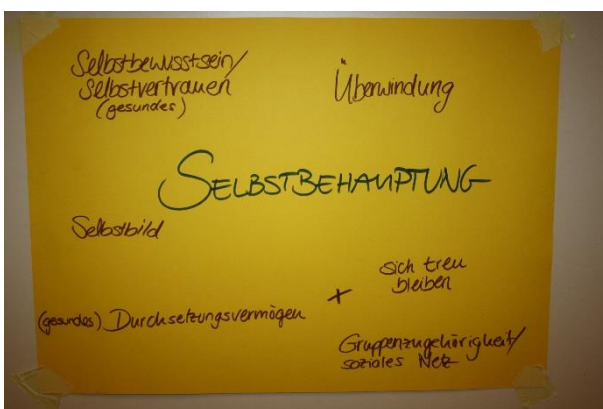 Selbstbewusstsein/
Selbstvertrauen
(gesundes)
Überwindung
SELBSTBEHAUPTUNG
Selbstbild
sich treu
bleiben
(gesundes) Durchsetzungsvermögen +
Gruppenzugehörigkeit/
soziales Netz